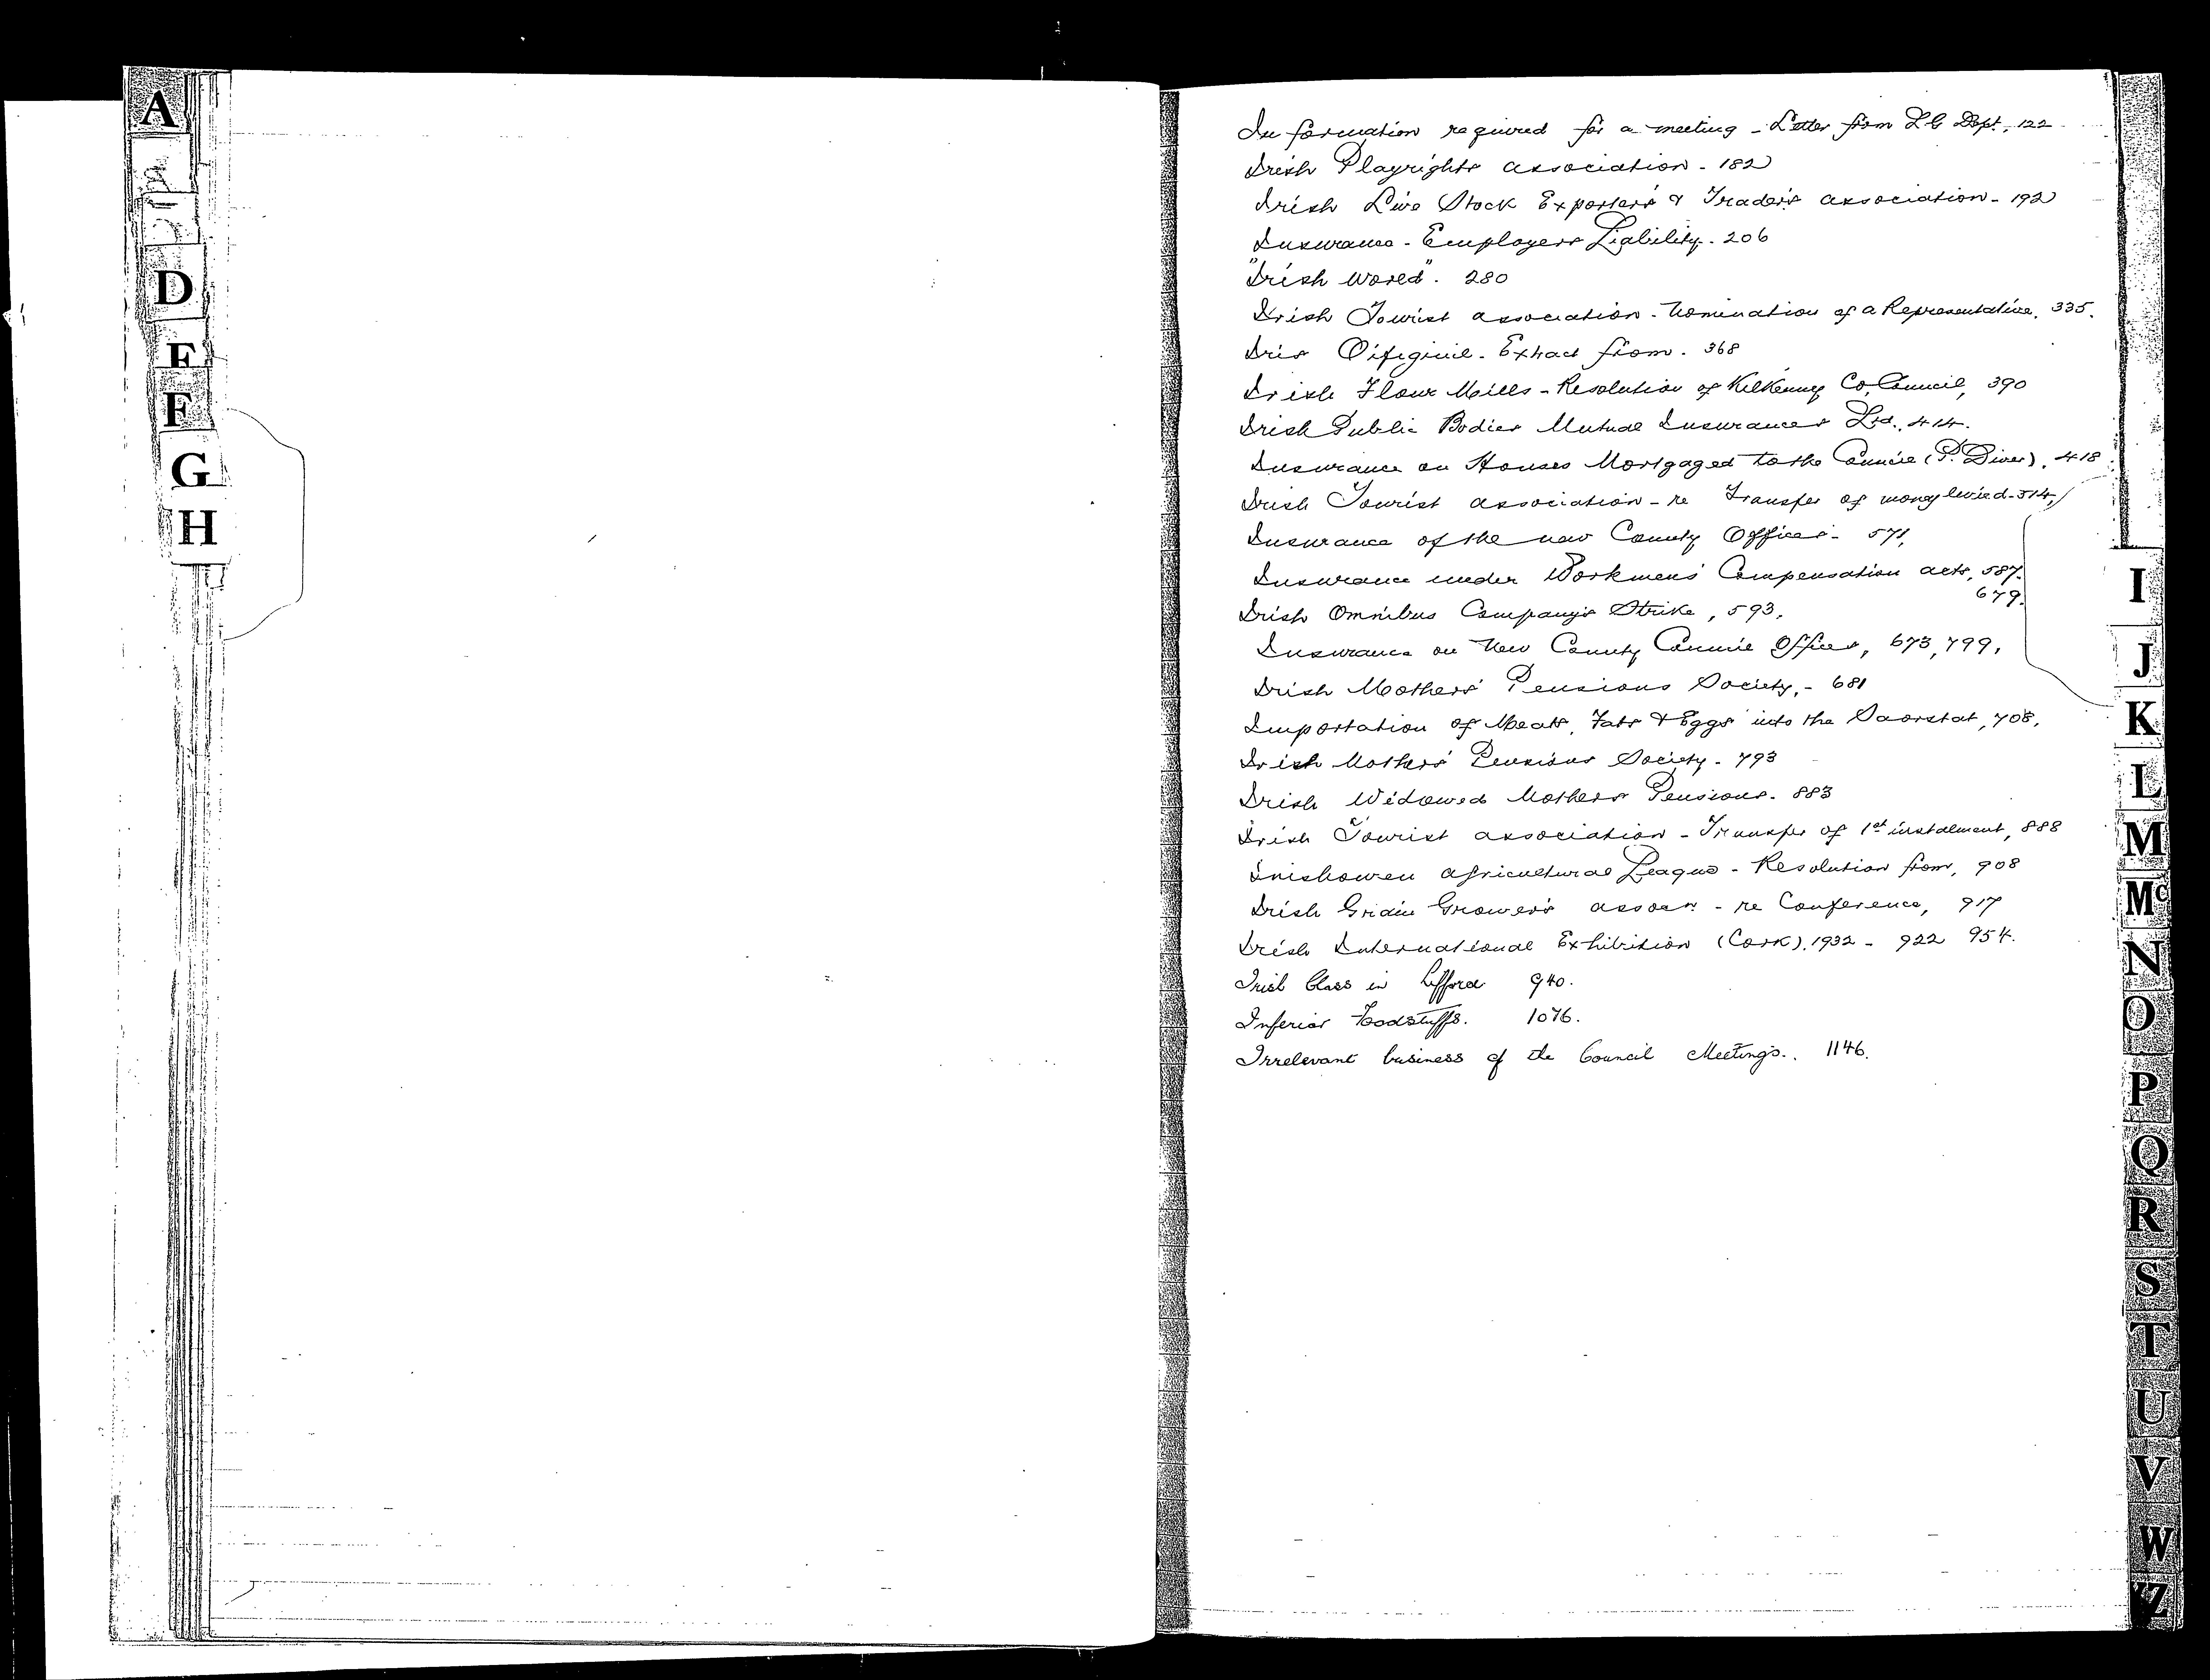 A
D
E
F
G
H
Information required for a meeting - Letter from L G Dept, 122
Irish Playrights association - 182
Irish Live Stock Exporters' & Trader's association - 192
Insurance - Employers Liability. 206
"Irish World". 280
Irish Tourist association - Nomination of a Representative. 335.
Iris Oifiguil - Extract from. 368
Irish Flour Mills - Resolution of Kilkenny Co, Council, 390
Irish Public Bodies Mutual Insurances Ltd., 414.
Insurance on Houses Mortgaged to the Council (P. Diver), 418
Irish Tourist association - re Transfer of money levied - 514,
Insurance of the new County Offices - 571,
Insurance under Workmens' Compensation acts, 587.
679.
Irish Omnibus Company's Strike, 593.
Insurance on New County Council Offices, 673, 799.
Irish Mothers' Pensions Society, - 681
Importation of Meats, Fats & Eggs into the Saorstat, 708.
Irish Mothers' Pensions Society - 793
Irish Widowed Mothers Pensions. 883
Irish Tourist association - Transfer of 1st instalment, 888
Inishowen agricultural League - Resolution from, 908
Irish Grain Grower's assocn - re Conference, 917
Irish International Exhibition (Cork). 1932 - 922 954.
Irish Class in Lifford 940.
Inferior Foodstuffs. 1076.
Irrelevant business of the Council Meetings.. 1146.
I
J
K
L
M
Mc
N
O
P
Q
R
S
T
U
V
W
YZ